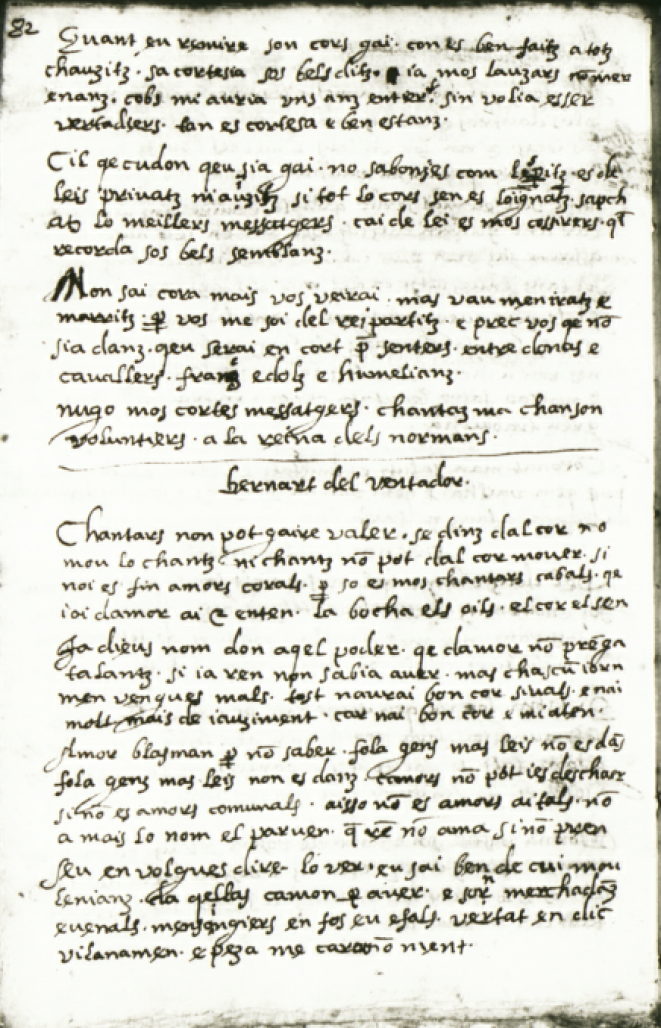 82
Quant eu remire son cors gai. con es ben faitz a totz
chauzitz. sa cortesia sos bels ditz. ia mos lauzars no mer
enanz. cobs mi auria uns anz enter. sin volia esser
vertadiers. tan es cortesa e ben estanz.
Cil qe cudon qeu sia gai. no sabon ies com
leis privatz si tot lo cors sen es loignatz. sapch
atz lo meillers messatgers. cai de lei es mos cosirers. qē
recorda sos bels semblanz.
Non sai cora mais vos veirai. mas vau men iratz e
marritz. p̱ vos me soi del rei partitz. e prec vos qe nō
sia danz. qeu serai en cort p̄ senters. entre donas e
cavallers. francs e dolz e humelianz.
nugo mos cortes messatgers. chantaz ma chanson
voluntiers. a la reina dels normans.
bernart del ventador.
Chantars non pot gaire valer. se dinz dal cor no
mou lo chantz ni chantz nō pot dal cor mouer. si
noi es fin amors corals. p̱ so es mos chantars cabals. qe
ioi damor ai & enten. la bocha els oils. el cor el sen
Ja dieus nom don aqel poder. qe damor nō prenga
talantz. si ia ren non sabia auer. mas chascū iorn
men vengues mals. tost naurai bon cor sivals. e nai
molt mais de iauziment. car nai bon cor e mi aten.
Amor blasman p̱ nō saber. fola gens mas leis nō es dāz
fola genz mas leis non es danz. camors nō pot ies deschazer
si nō es amors comunals. aisso nō es amors aitals. nō
a mais lo nom el parven. qe rē nō ama si nō pren
Seu en volgues dire lo ver. eu sai ben de cui mou
lenianz. da qellas camon p̱ aver. e son merchadāz
evenals. mensongiers en fos eu e fals. vertat en dic
vilanamen. e peza me car nō ment.